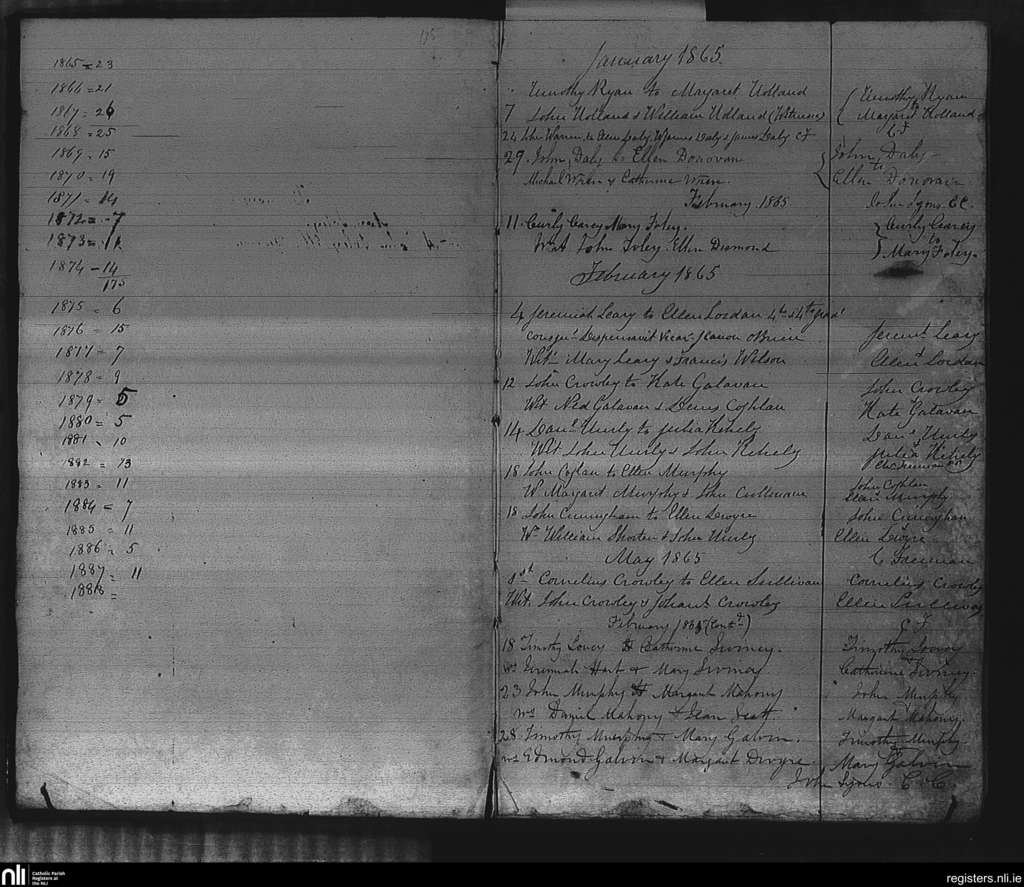 175
1865 = 23
1866 = 21
1867 = 26
1868 = 25
1869 = 15
1870 = 19
1871 = 14
1872 = 7
1873 = 11
1874 - 14
175
1875 = 6
1876 = 15
1877 = 7
1878 = 9
1879 = 5
1880 = 5
1881 = 10
1882 = 13
1883 = 11
1884 = 7
1885 = 11
1886 = 5
1887 = 11
1888 =
January 1865
Timothy Ryan to Margaret Holland
7 John Holland & William Holland
24 John Warren to Ellen Daly James Daly C F
29 John Daly to Ellen Donovan
Michael Wren & Catherine Wren
February 1865
11 Curly Carey Mary Foley
Wit John Foley Ellen Desmond
February 1865
4 Jeremiah Leary to Ellen Lordan 4th & 4th grad
Dispensavit Vicar OBrien
Wit Mary Leary & Francis Wilson
12 John Crowley to Kate Galavan
Wit Ned Galavan & Denis Coghlan
14 Danl Hurly to Julia Kehely
Wit John Hurly & John Kehely
18 John Coglan to Ellen Murphy
W Margaret Murphy & John Cullinane
18 John Cuningham to Ellen Dwyre
Wt William Shorten & John Hurly
May 1865
1st Cornelius Crowley to Ellen Sullivan
Wit. John Crowley & Johana Crowley
February 1865 (Contd)
18 Timothy Lovey to Catherine Sweeney.
Ws Jeremiah Hart & Mary Sweeney
23 John Murphy to Margaret Mahony
Ws Daniel Mahony & Jean Scott
28 Timothy Murphy & Mary Galvin.
Ws Edmond Galvin & Margaret Dwyre.
John Lyons C C
Timothy Ryan
to
Margaret Holland
C F
John Daly
to
Ellen Donovan
John Lyons CC
Curly Carey
to
Mary Foley
Jeremh Leary
Ellen Lordan
John Crowley
Kate Galavan
Danl Hurly
Julia Kehely
John Coghlan
Ellen Murphy
John Cuningham
Ellen Dwyre
Cornelius Crowley
Ellen Sullivan
C F
Timothy Lovey
Catherine Sweeney
John Murphy
Margaret Mahony
Timothy Murphy
to
Mary Galvin
nli
Catholic Parish
Registers at
the NLI
registers.nli.ie